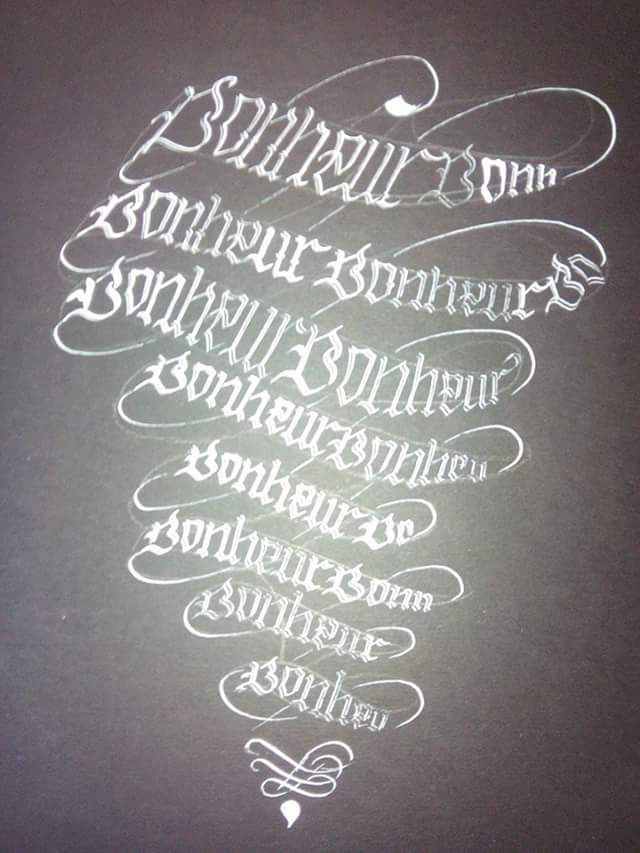 Bonheur Bonn
Bonheur Bonheur Bo
Bonheur Bonheur
Bonheur Bonheu
Bonheur Bo
Bonheur Bonn
Bonheur
Bonheu